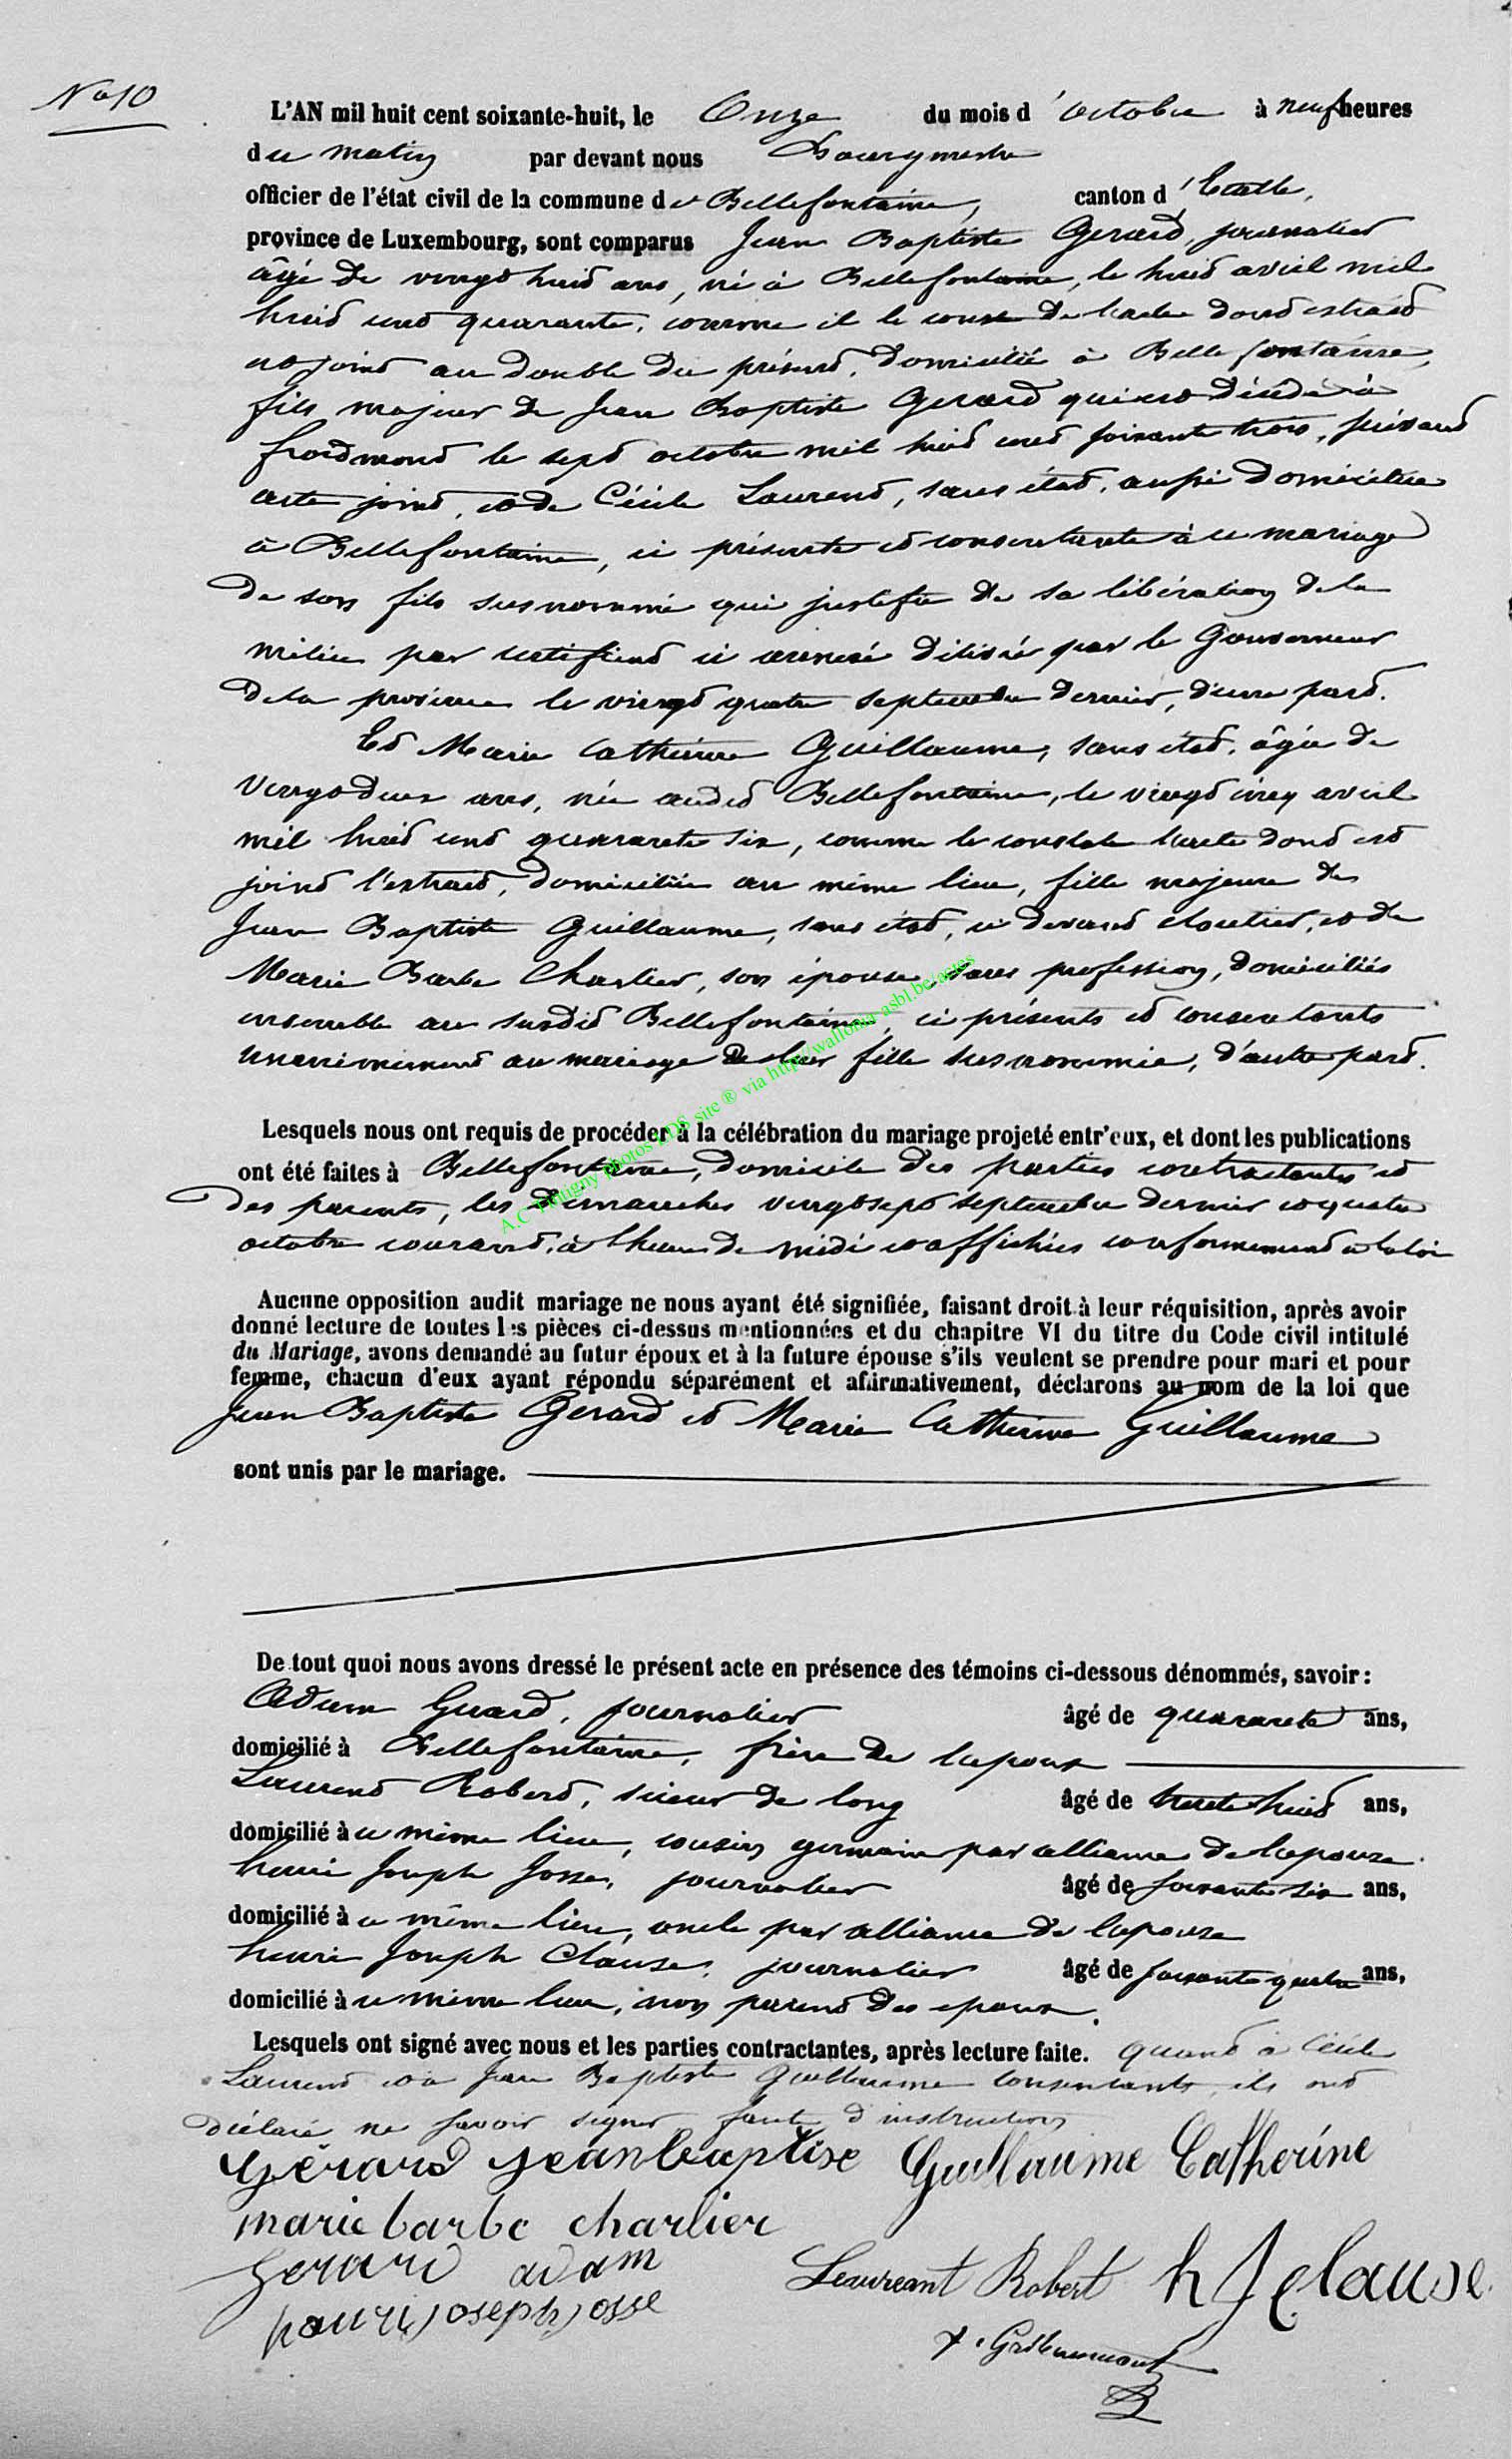 No 10
L'AN mil huit cent soixante-huit, le Onze du mois d'octobre à neuf heures
du matin par devant nous Bourgmestre
officier de l'état civil de la commune de Bellefontaine, canton d'Etalle,
province de Luxembourg, sont comparus Jean Baptiste Gerard, journalier
âgé de vingt huit ans, né à Bellefontaine, le huit avril mil
huit cent quarante, comme il le conste de l'acte dont extrait
est joint au double du présent, domicilié à Bellefontaine,
fils majeur de Jean Baptiste Gerard qui est décédé à
froidmont le sept octobre mil huit cent soixante trois, suivant
acte joint, et de Cécile Laurent, sans état, aussi domiciliée
à Bellefontaine, ci présente et consentante à ce mariage
de son fils susnommé qui justifie de sa libération de la
milice par certificat ci annexé délivré par le Gouverneur
de la province le vingt quatre septembre dernier, d'une part.
Et Marie Catherine Guillaume, sans état, âgée de
vingt deux ans, née audit Bellefontaine, le vingt cinq avril
mil huit cent quarante six, comme le constate l'acte dont est
joint l'extrait, domiciliée au même lieu, fille majeure de
Jean Baptiste Guillaume, sans état, ci devant cloutier, et de
Marie Barbe Charlier, son épouse, sans profession, domiciliés
ensemble au susdit Bellefontaine, ci présents et consentants
unanimement au mariage de leur fille susnommée, d'autre part.
Lesquels nous ont requis de procéder à la célébration du mariage projeté entr'eux, et dont les publications
ont été faites à Bellefontaine, domicile des parties contractantes et
des parents, les dimanches vingt sept septembre dernier et quatre
octobre courant, à l'heure de midi et affichées conformément à la loi
Aucune opposition audit mariage ne nous ayant été signifiée, faisant droit à leur réquisition, après avoir
donné lecture de toutes les pièces ci-dessus mentionnées et du chapitre VI du titre du Code civil intitulé
du Mariage, avons demandé au futur époux et à la future épouse s'ils veulent se prendre pour mari et pour
femme, chacun d'eux ayant répondu séparément et affirmativement, déclarons au nom de la loi que
Jean Baptiste Gerard et Marie Catherine Guillaume
sont unis par le mariage.
De tout quoi nous avons dressé le présent acte en présence des témoins ci-dessous dénommés, savoir :
Adam Gerard, journalier âgé de quarante ans,
domicilié à Bellefontaine, frère de l'epoux
Laurent Robert, scieur de long âgé de trente huit ans,
domicilié à ce même lieu, cousin germain par alliance de l'epouse.
henri Joseph Josse, journalier âgé de soixante six ans,
domicilié à ce même lieu, oncle par alliance de l'epouse
henri Joseph Clause, journalier âgé de soixante quatre ans,
domicilié à ce même lieu, non parent des epoux.
Lesquels ont signé avec nous et les parties contractantes, après lecture faite. Quant à Cécile
Laurent et à Jean Baptiste Guillaume consentants, ils ont
déclaré ne savoir signer faute d'instruction
Gérard Jean baptise Guillaume Catherine
marie barbe charlier
Gerard adam Leaureant Robert h J clause
hanri joseph josse
A.C Tintigny photos LDS site ® via http://wallonia-asbl.be/actes